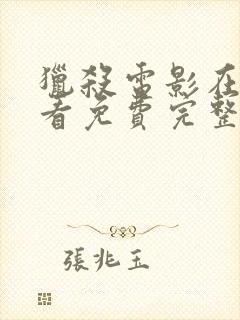 獵殺雷影在
看免費完整
張兆玉